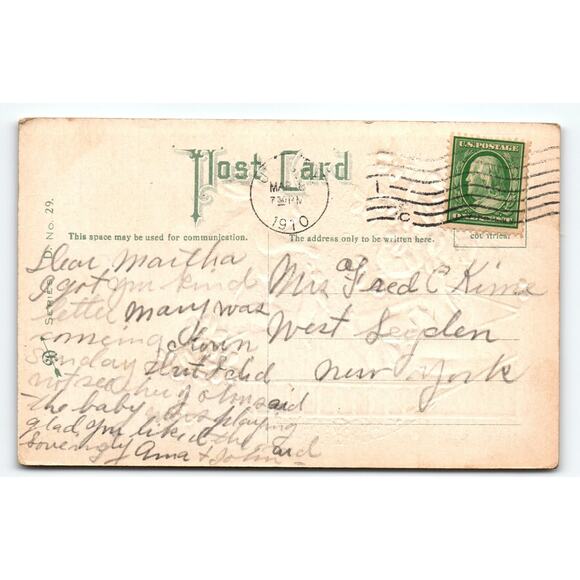 Post Card
U.S. POSTAGE
MAR
7 30 PM
1910
This space may be used for communication.
The address only to be written here.
SERIES D. No. 29.
Dear Martha
I got you kind
letter mary was
comeing town
Sunday that I did
not see her John said
the baby was playing
glad you liked the
Loveingly Ama + John
Mrs Fred C Kime
West Leyden
New York